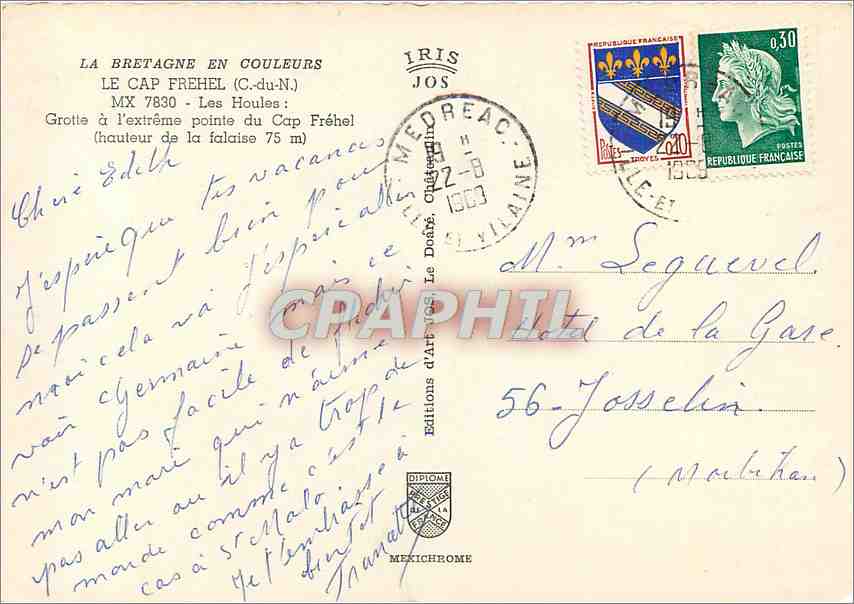 LA BRETAGNE EN COULEURS
LE CAP FREHEL (C.-du-N.)
MX 7830 - Les Houles :
Grotte à l'extrême pointe du Cap Fréhel
(hauteur de la falaise 75 m)
IRIS
JOS
Chère Edith
J'espère que tes vacances
se passent bien pour
moi cela va j'espère aller
voir Germaine mais ce
n'est pas facile de
mon mari qui n'aime
pas aller où il y a trop de
monde comme c'est le
cas à St Malo.
Je t'embrasse à
bientôt
Editions d'Art JOS, Le Doaré, Châteaulin
DIPLOME
PRESTIGE
DE LA
FRANCE
MEXICHROME
MEDREAC
22-8
ILLE-ET-VILAINE
REPUBLIQUE FRANÇAISE
Postes
TROYES
0,10
0,30
POSTES
REPUBLIQUE FRANÇAISE
ILLE-ET
Mme Leguevel
Hotel de la Gare
56 - Josselin
(Morbihan)
CPAPHIL